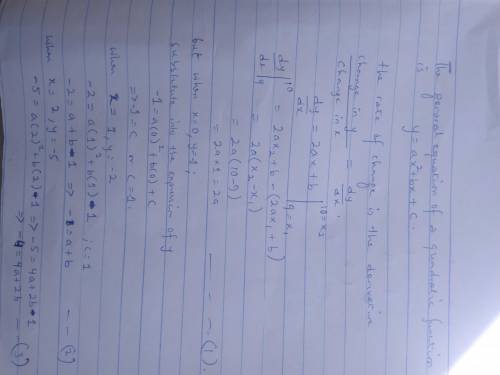 The general equation of a quadratic function
is y = ax² + bx + c.
the rate of change is the derivative
change in y / change in x = dy / dx.
dy/dx = 2ax + b |10 = x₂ 9 = x₁
dy/dx |10 9 = 2ax₂ + b - (2ax₁ + b)
= 2a(x₂ - x₁)
= 2a(10 - 9)
= 2a × 1 = 2a - - - (1).
but when x = 0, y = -1;
substitute into the expression of y
-1 = a(0)² + b(0) + c
=> -1 = c or c = 1.
when x = 1, y = -2
-2 = a(1)² + b(1) - 1 ; c = 1
-2 = a + b - 1 => -1 = a + b - - (2)
when x = 2, y = -5
-5 = a(2)² + b(2) - 1 => -5 = 4a + 2b - 1
=> -4 = 4a + 2b - - (3)